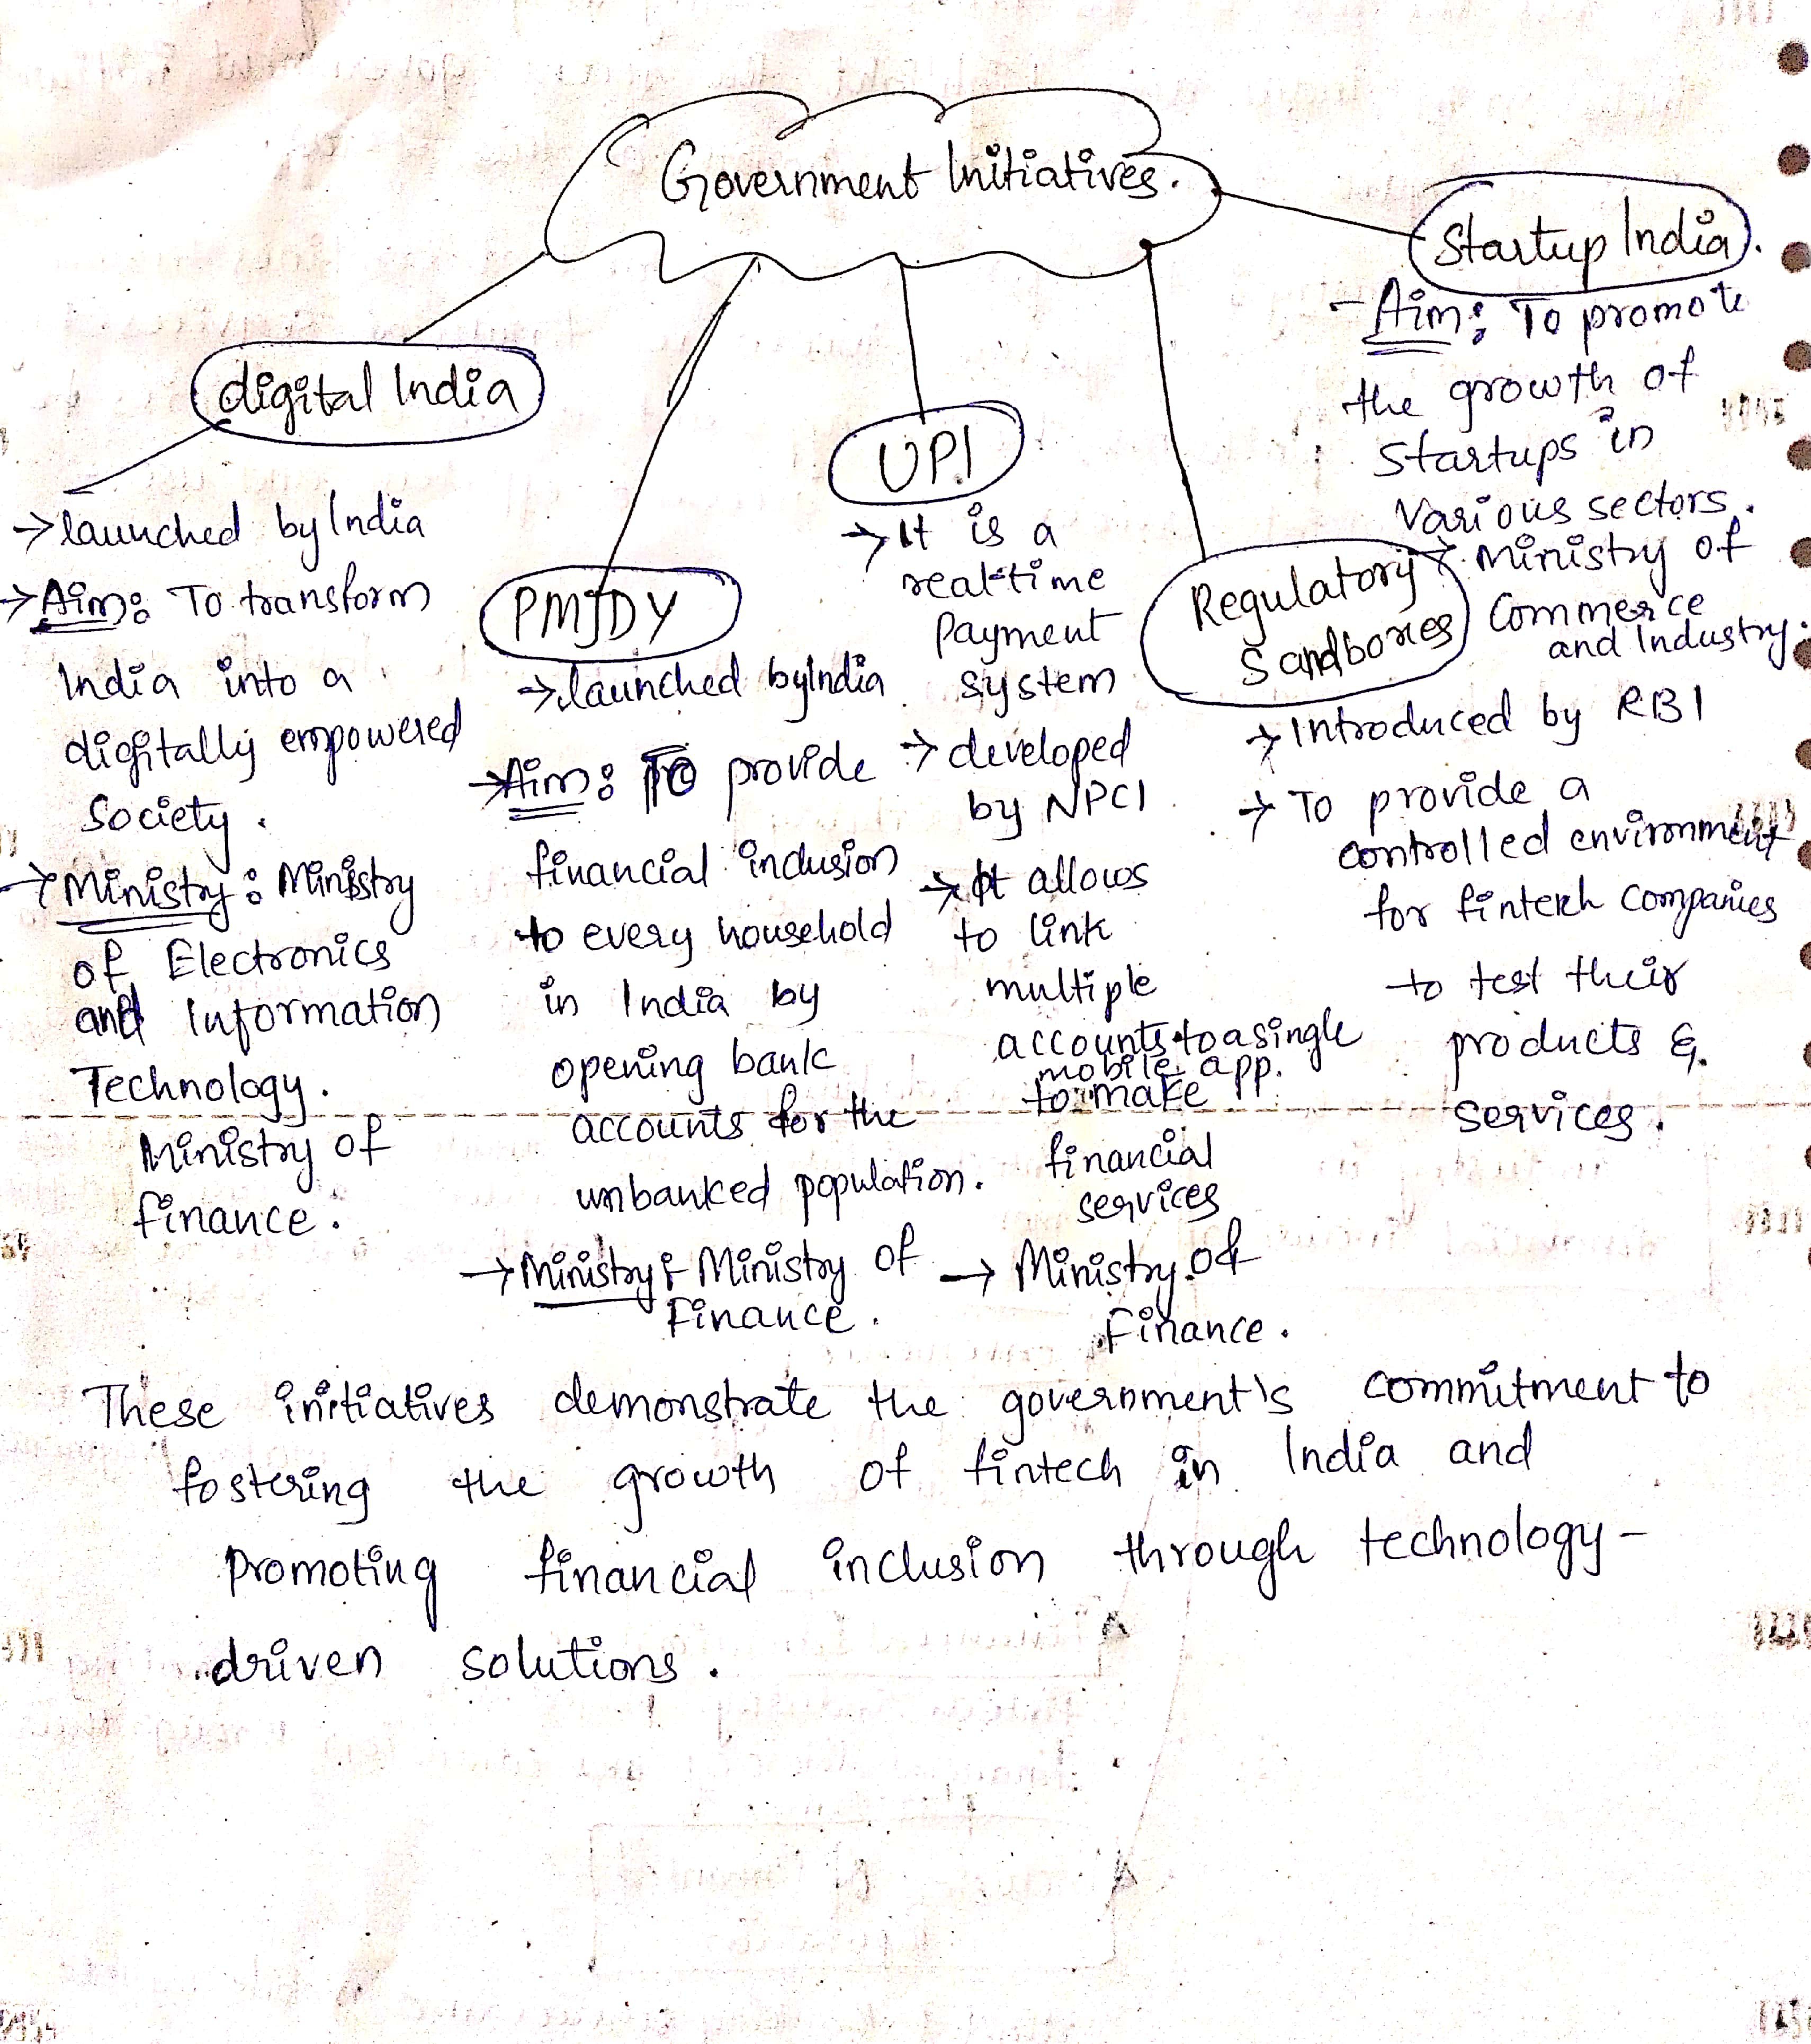 Government Initiatives.
digital India
→ launched by India
→ Aim: To transform
India into a
digitally empowered
society.
→ Ministry: Ministry
of Electronics
and Information
Technology.
Ministry of
finance.
PMJDY
→ launched by India
→ Aim: To provide
financial inclusion
to every household
in India by
opening bank
accounts for the
unbanked population.
→ Ministry: Ministry of
Finance.
UPI
→ It is a
real-time
Payment
system
→ developed
by NPCI
→ It allows
to link
multiple
accounts to a single
mobile app.
to make
financial
services
→ Ministry of
Finance.
Regulatory
Sandboxes
→ Introduced by RBI
→ To provide a
controlled environment
for fintech companies
to test their
products &
services.
Startup India.
- Aim: To promote
the growth of
startups in
various sectors.
→ Ministry of
Commerce
and Industry.
These initiatives demonstrate the government's commitment to
fostering the growth of fintech in India and
promoting financial inclusion through technology-
driven solutions.